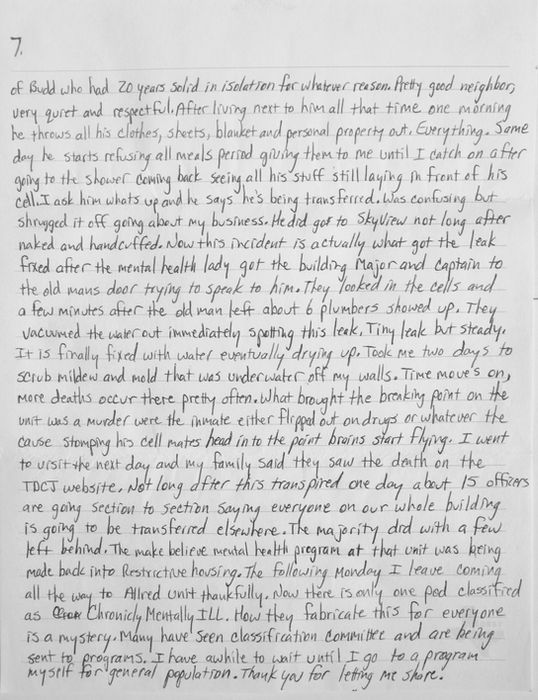 7.
of Budd who had 20 years solid in isolation for whatever reason. Pretty good neighbor,
very quiet and respectful. After living next to him all that time one morning
he throws all his clothes, sheets, blanket and personal property out. Everything. Same
day he starts refusing all meals period giving them to me until I catch on after
going to the shower coming back seeing all his stuff still laying in front of his
cell. I ask him whats up and he says he's being transferred. Was confusing but
shrugged it off going about my business. He did go to SkyView not long after
naked and handcuffed. Now this incident is actually what got the leak
fixed after the mental health lady got the building Major and Captain to
the old mans door trying to speak to him. They looked in the cells and
a few minutes after the old man left about 6 plumbers showed up. They
vacuumed the water out immediately spotting this leak. Tiny leak but steady.
It is finally fixed with water eventually drying up. Took me two days to
scrub mildew and mold that was underwater off my walls. Time move's on,
more deaths occur there pretty often. What brought the breaking point on the
unit was a murder were the inmate either flipped out on drugs or whatever the
cause stomping his cell mates head in to the point brains start flying. I went
to visit the next day and my family said they saw the death on the
TDCJ website. Not long after this transpired one day about 15 officers
are going section to section saying everyone on our whole building
is going to be transferred elsewhere. The majority did with a few
left behind. The make believe mental health program at that unit was being
made back into Restrictive housing. The following Monday I leave coming
all the way to Allred Unit thankfully. Now there is only one pod classified
as Chronicly Mentally ILL. How they fabricate this for everyone
is a mystery. Many have seen classification committee and are being
sent to programs. I have awhile to wait until I go to a program
myself for general population. Thank you for letting me share.